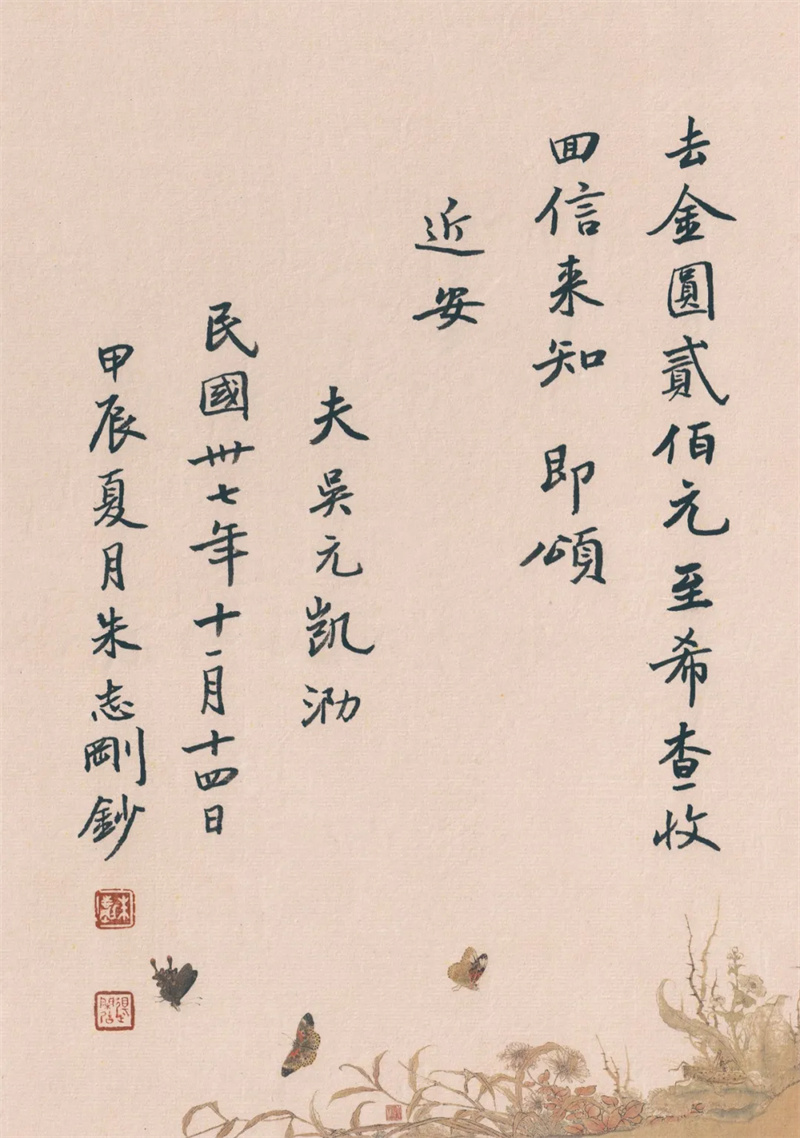 去金圓貳佰元至希查收
囬信来知 即頌
近安
夫吳元凱泐
民國卅七年十一月十四日
甲辰夏月朱志剛鈔